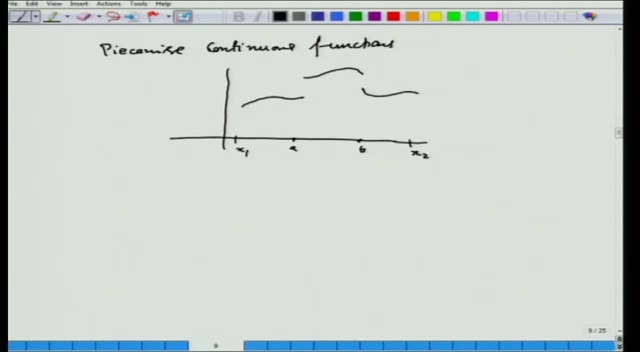 File Edit View Insert Actions Tools Help
Piecewise Continuous functions
x1 a b x2
9 / 25
9